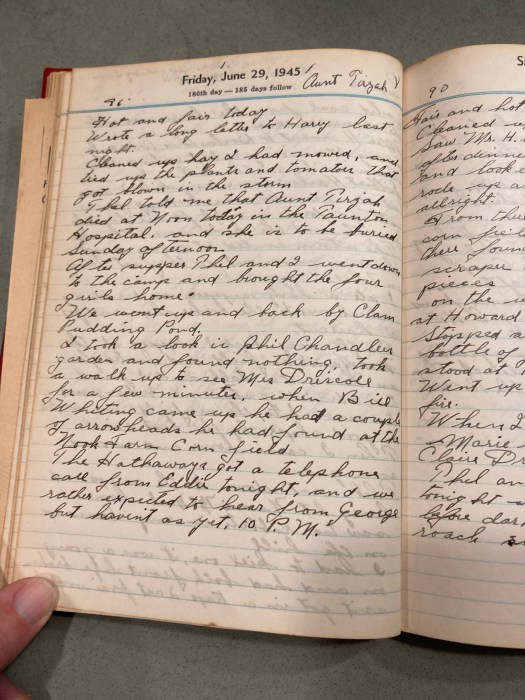 Friday, June 29, 1945
Aunt Tirzah
180th day — 185 days follow
96°
Hot and fair today
Wrote a long letter to Harry last
night.
Cleaned up hay I had mowed, and
tied up the plants and tomatoes that
got blown in the storm
Thel told me that Aunt Tirzah
died at Noon today in the Taunton
Hospital. and she is to be buried
Sunday afternoon
After supper Thel and I went down
to the camp and brought the four
girls home.
We went up and back by Clam
Pudding Pond.
I took a look in Phil Chandler
garden and found nothing, took
a walk up to see Mrs Driscole
for a few minutes, when Bill
Whiting came up he had a couple
of arrowheads he had found at the
Nook Farm Corn field
The Hathaways got a telephone
call from Eddie tonight, and we
rather expected to hear from George
but havent as yet, 10 P.M.
90
Hair and hot
Cleaned u
Saw Mr. H.
after dinner
and look
rode up a
allright.
From ther
corn fiel
there foun
scraper
pieces
on the w
at Howard
Stopped a
bottle of
stood at
Went up
fire.
When I
Marie
Claire Dr
Thel an
tonight
before dar
roach